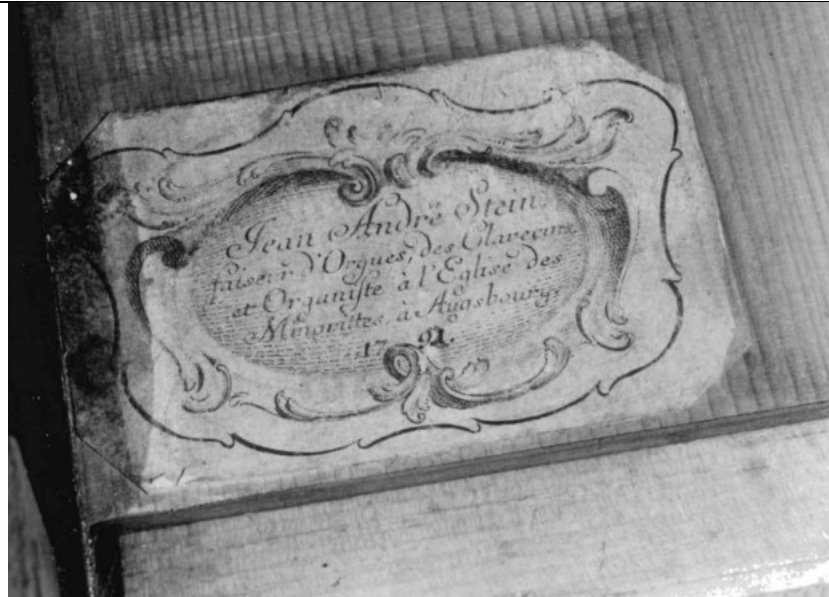 Jean André Stein
faiseur d'Orgues, des Clavecins
et Organiste à l'Eglise des
Minorittes, à Augsbourg.
1791.